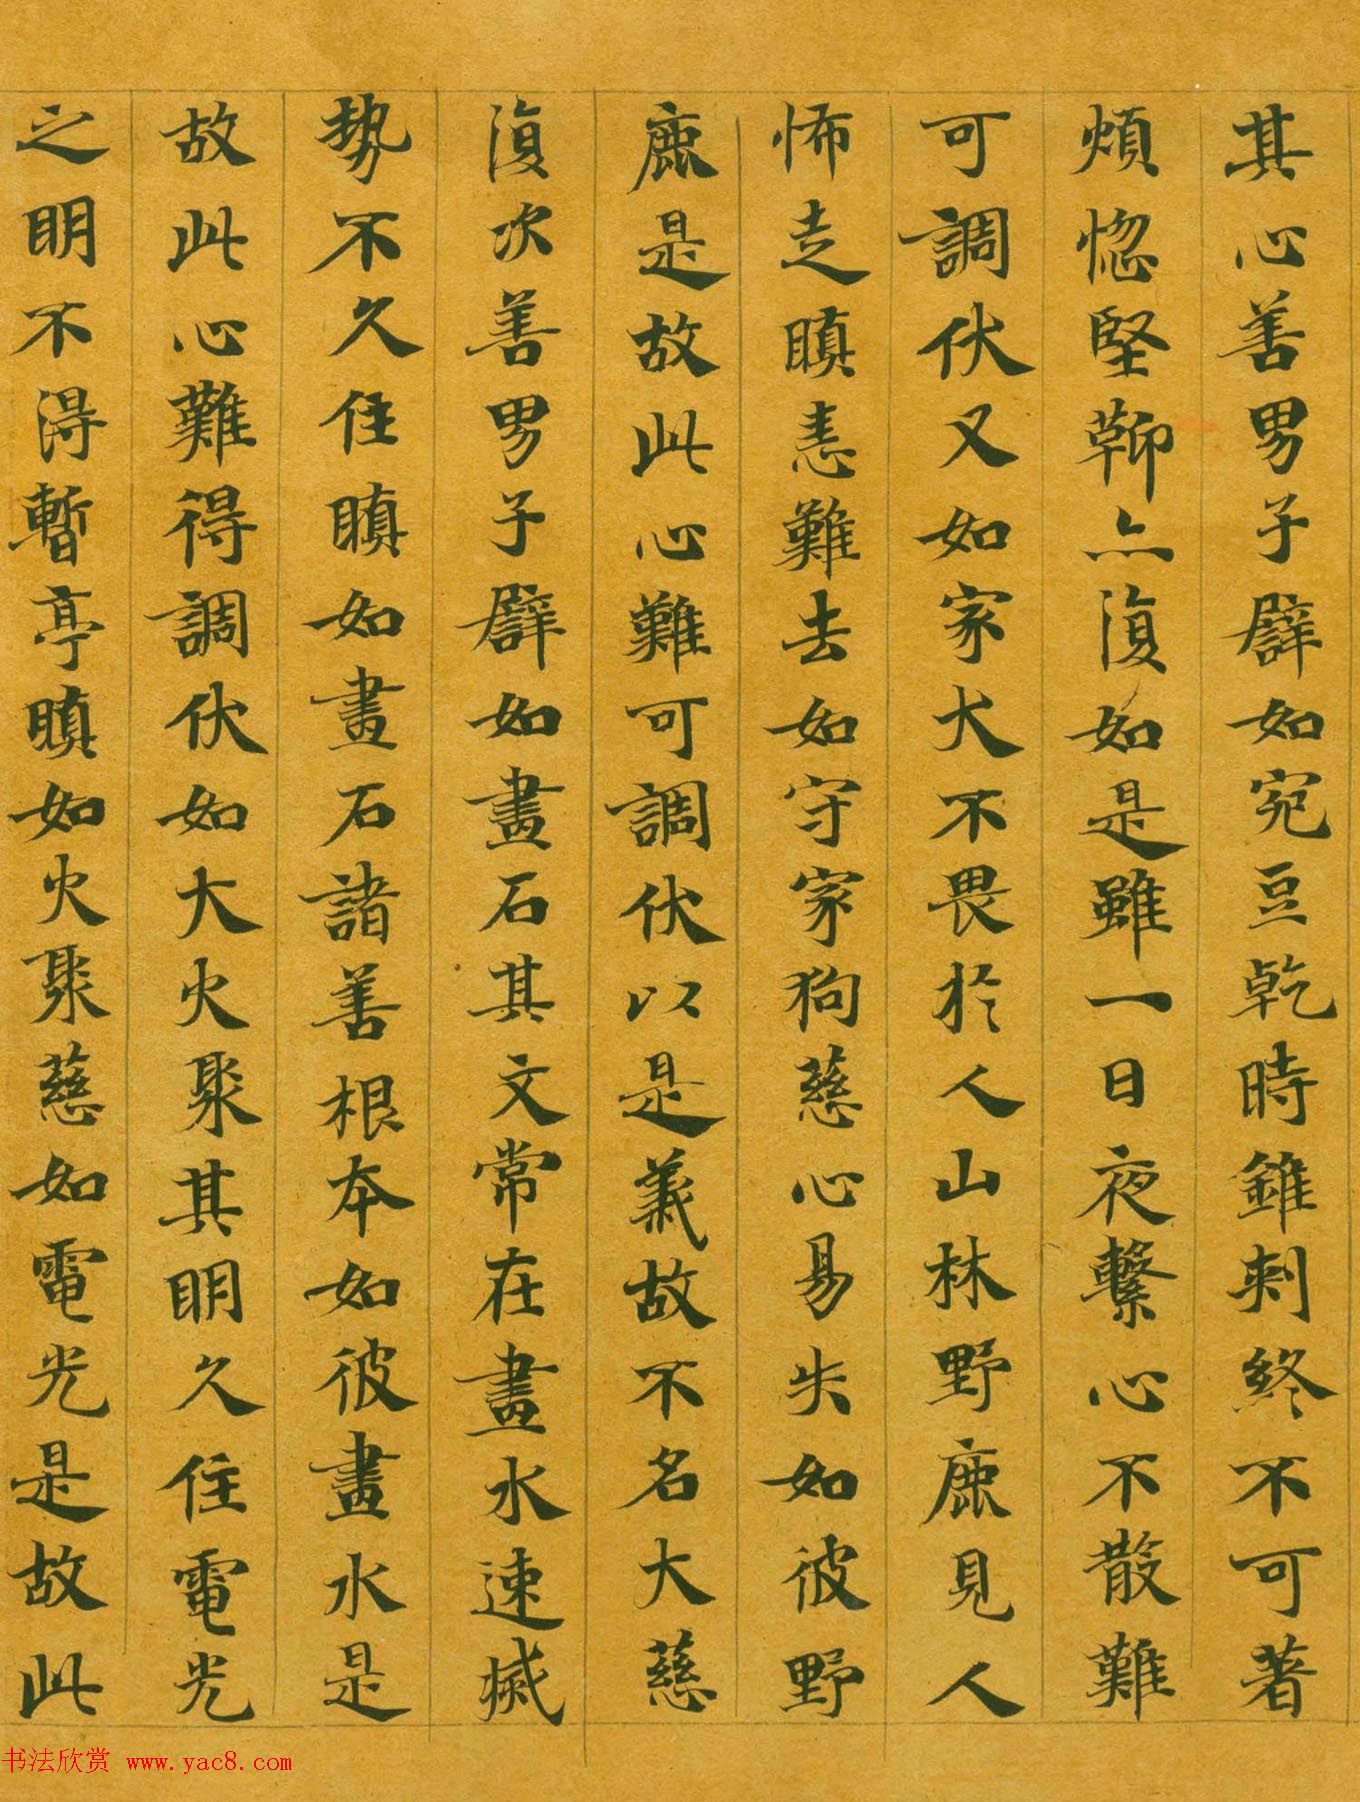 其心善男子譬如宛豆乾時錐刺終不可著
煩惱堅鞕亦復如是雖一日夜繫心不散難
可調伏又如家犬不畏於人山林野鹿見人
怖走瞋恚難去如守家狗慈心易失如彼野
鹿是故此心難可調伏以是義故不名大慈
復次善男子譬如畫石其文常在畫水速滅
勢不久住瞋如畫石諸善根本如彼畫水是
故此心難得調伏如大火聚其明久住電光
之明不得暫停瞋如火聚慈如電光是故此
书法欣赏 www.yac8.com